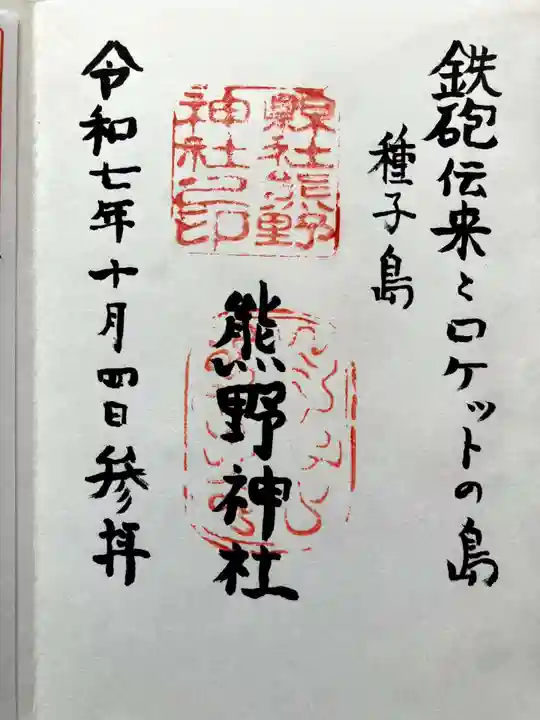 鉄砲伝来とロケットの島
種子島
縣社熊野
神社之印
熊野神社
令和七年十月四日参拝